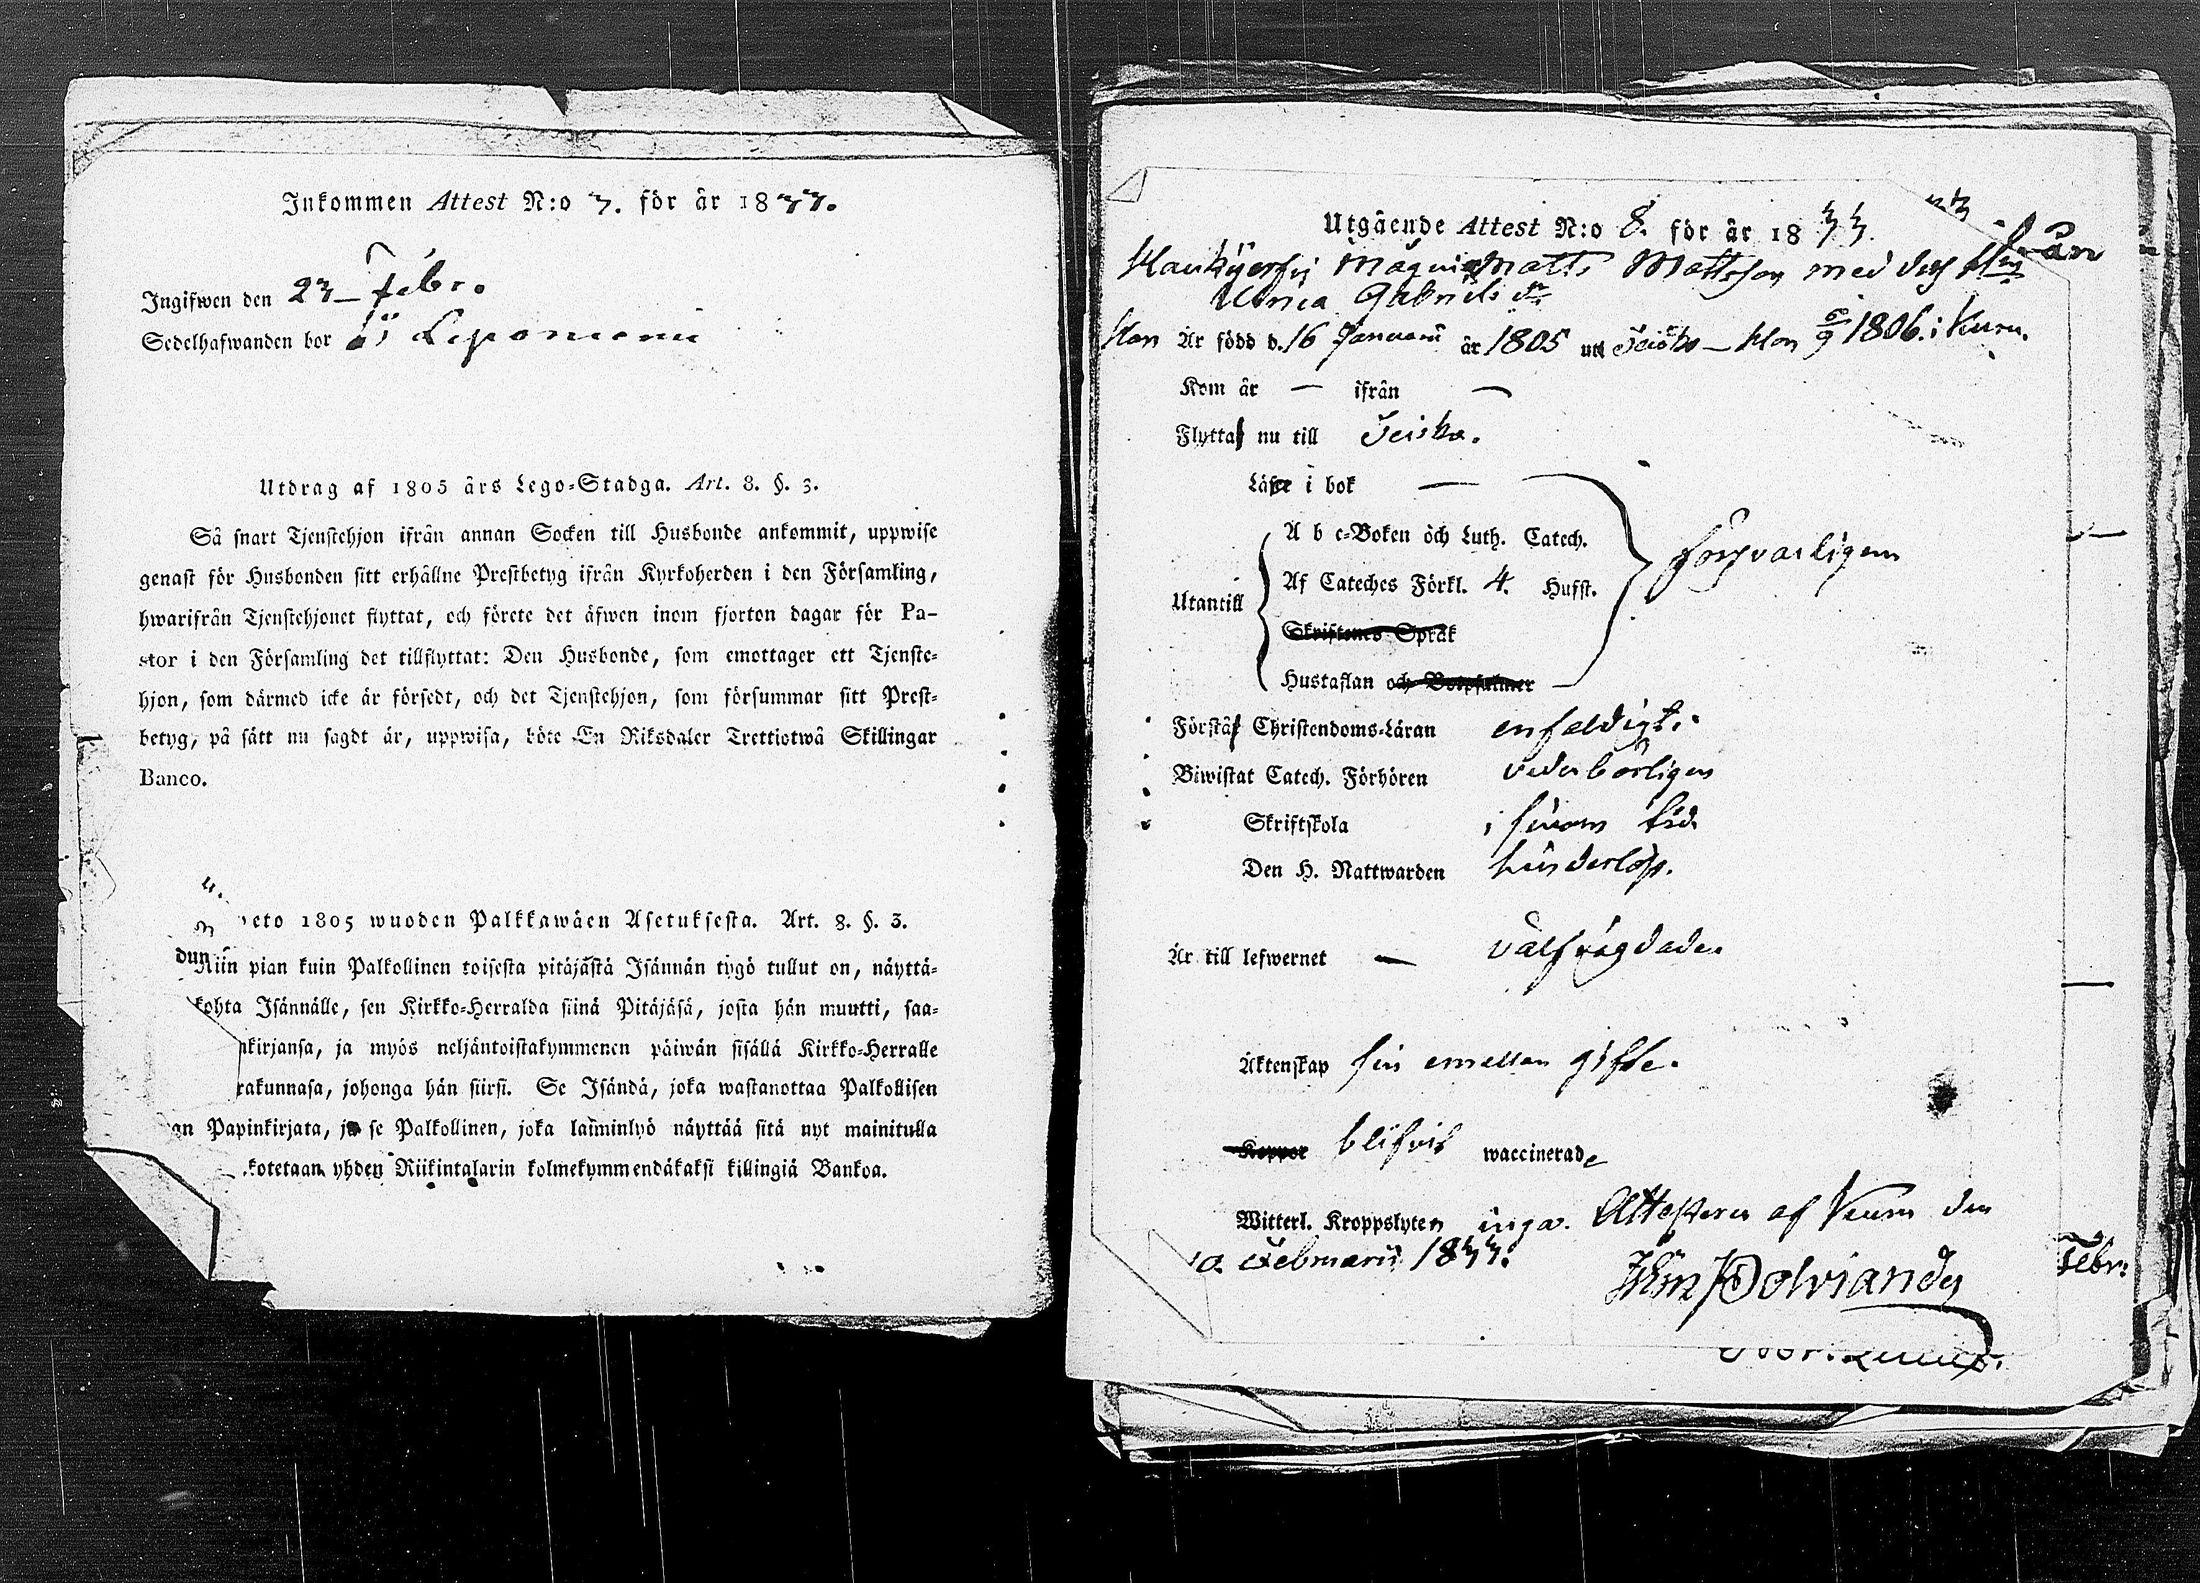 Inkommen Attest N:o 7. för år 1833.
Ingifwen den 23 Febr.
Sedelhafwanden bor i Leponiemi
Utdrag af 1805 års Lego-Stadga. Art. 8. §. 3.
Så snart Tjenstehjon ifrån annan Socken till Husbonde ankommit, uppwise
genast för Husbonden sitt erhållne Prestbetyg ifrån Kyrkoherden i den Församling,
hwarifrån Tjenstehjonet flyttat, och förete det äfwen inom fjorton dagar för Pa-
stor i den Församling det tillflyttat: Den Husbonde, som emottager ett Tjenste-
hjon, som därmed icke är försedt, och det Tjenstehjon, som försummar sitt Prest-
betyg, på sätt nu sagdt är, uppwisa, böte En Riksdaler Trettiotwå Skillingar
Banco.
4.
3
eto 1805 wuoden Palkkawäen Asetuksesta. Art. 8. §. 3.
dun Niin pian kuin Palkollinen toisesta pitäjästä Isännän tygö tullut on, näyttä-
kohta Isännälle, sen Kirkko-Herralda siinä Pitäjäsä, josta hän muutti, saa-
nkirjansa, ja myös neljäntoistakymmenen päiwän sisällä Kirkko-Herralle
rakunnasa, johonga hän siirsi. Se Isändä, joka wastanottaa Palkollisen
an Papinkirjata, ja se Palkollinen, joka laiminlyö näyttää sitä nyt mainitulla
kotetaan yhden Riikintalarin kolmekymmendäkaksi killingiä Bankoa.
Utgående Attest N:o 8. för år 1833.
Matts Mattsson med dess Hu
Gabriels dr
Han Är född d. 16 Januarii år 1805 uti Jeisko – Hon 6/9 1806. i Kuru.
Kom år — ifrån —
Flyttas nu till Teisko.
Läser i bok —
A b c-Boken och Luth. Catech.
försvarligen
Utantill
Af Cateches Förkl. 4. Hufst.
Skriftenes Språk
Hustaflan och Botpsalmer
Förstå Christendoms-Läran enfaldigt.
Biwistat Catech. Förhören vederbörligen
Skriftskola i sinom tid
Den H. Nattwarden hinderlös.
Är till lefwernet — välfrägdade.
Äktenskap sin emellan gifte.
Koppor blifvit waccinerade
Witterl. Kroppslyten inga. Attesterar af Kuru den
Februarii 1833.
Febr: